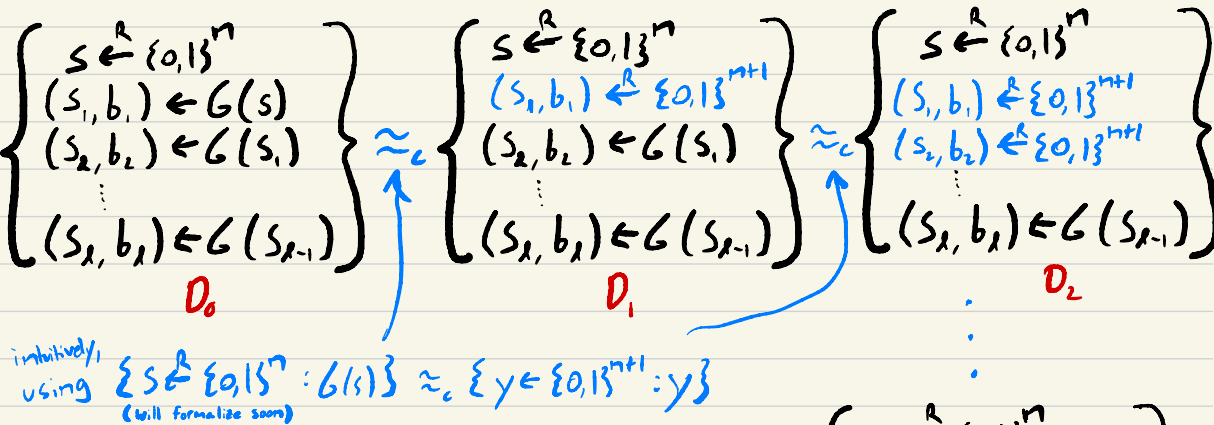 s ←ᴿ {0,1}ⁿ
(s₁, b₁) ← G(s)
(s₂, b₂) ← G(s₁)
⋮
(s_ℓ, b_ℓ) ← G(s_{ℓ-1})
D₀
≈_c
s ←ᴿ {0,1}ⁿ
(s₁, b₁) ←ᴿ {0,1}ⁿ⁺¹
(s₂, b₂) ← G(s₁)
⋮
(s_ℓ, b_ℓ) ← G(s_{ℓ-1})
D₁
≈_c
s ←ᴿ {0,1}ⁿ
(s₁, b₁) ←ᴿ {0,1}ⁿ⁺¹
(s₂, b₂) ←ᴿ {0,1}ⁿ⁺¹
⋮
(s_ℓ, b_ℓ) ← G(s_{ℓ-1})
D₂
⋮
intuitively,
using {s ←ᴿ {0,1}ⁿ : G(s)} ≈_c {y ← {0,1}ⁿ⁺¹ : y}
(will formalize soon)